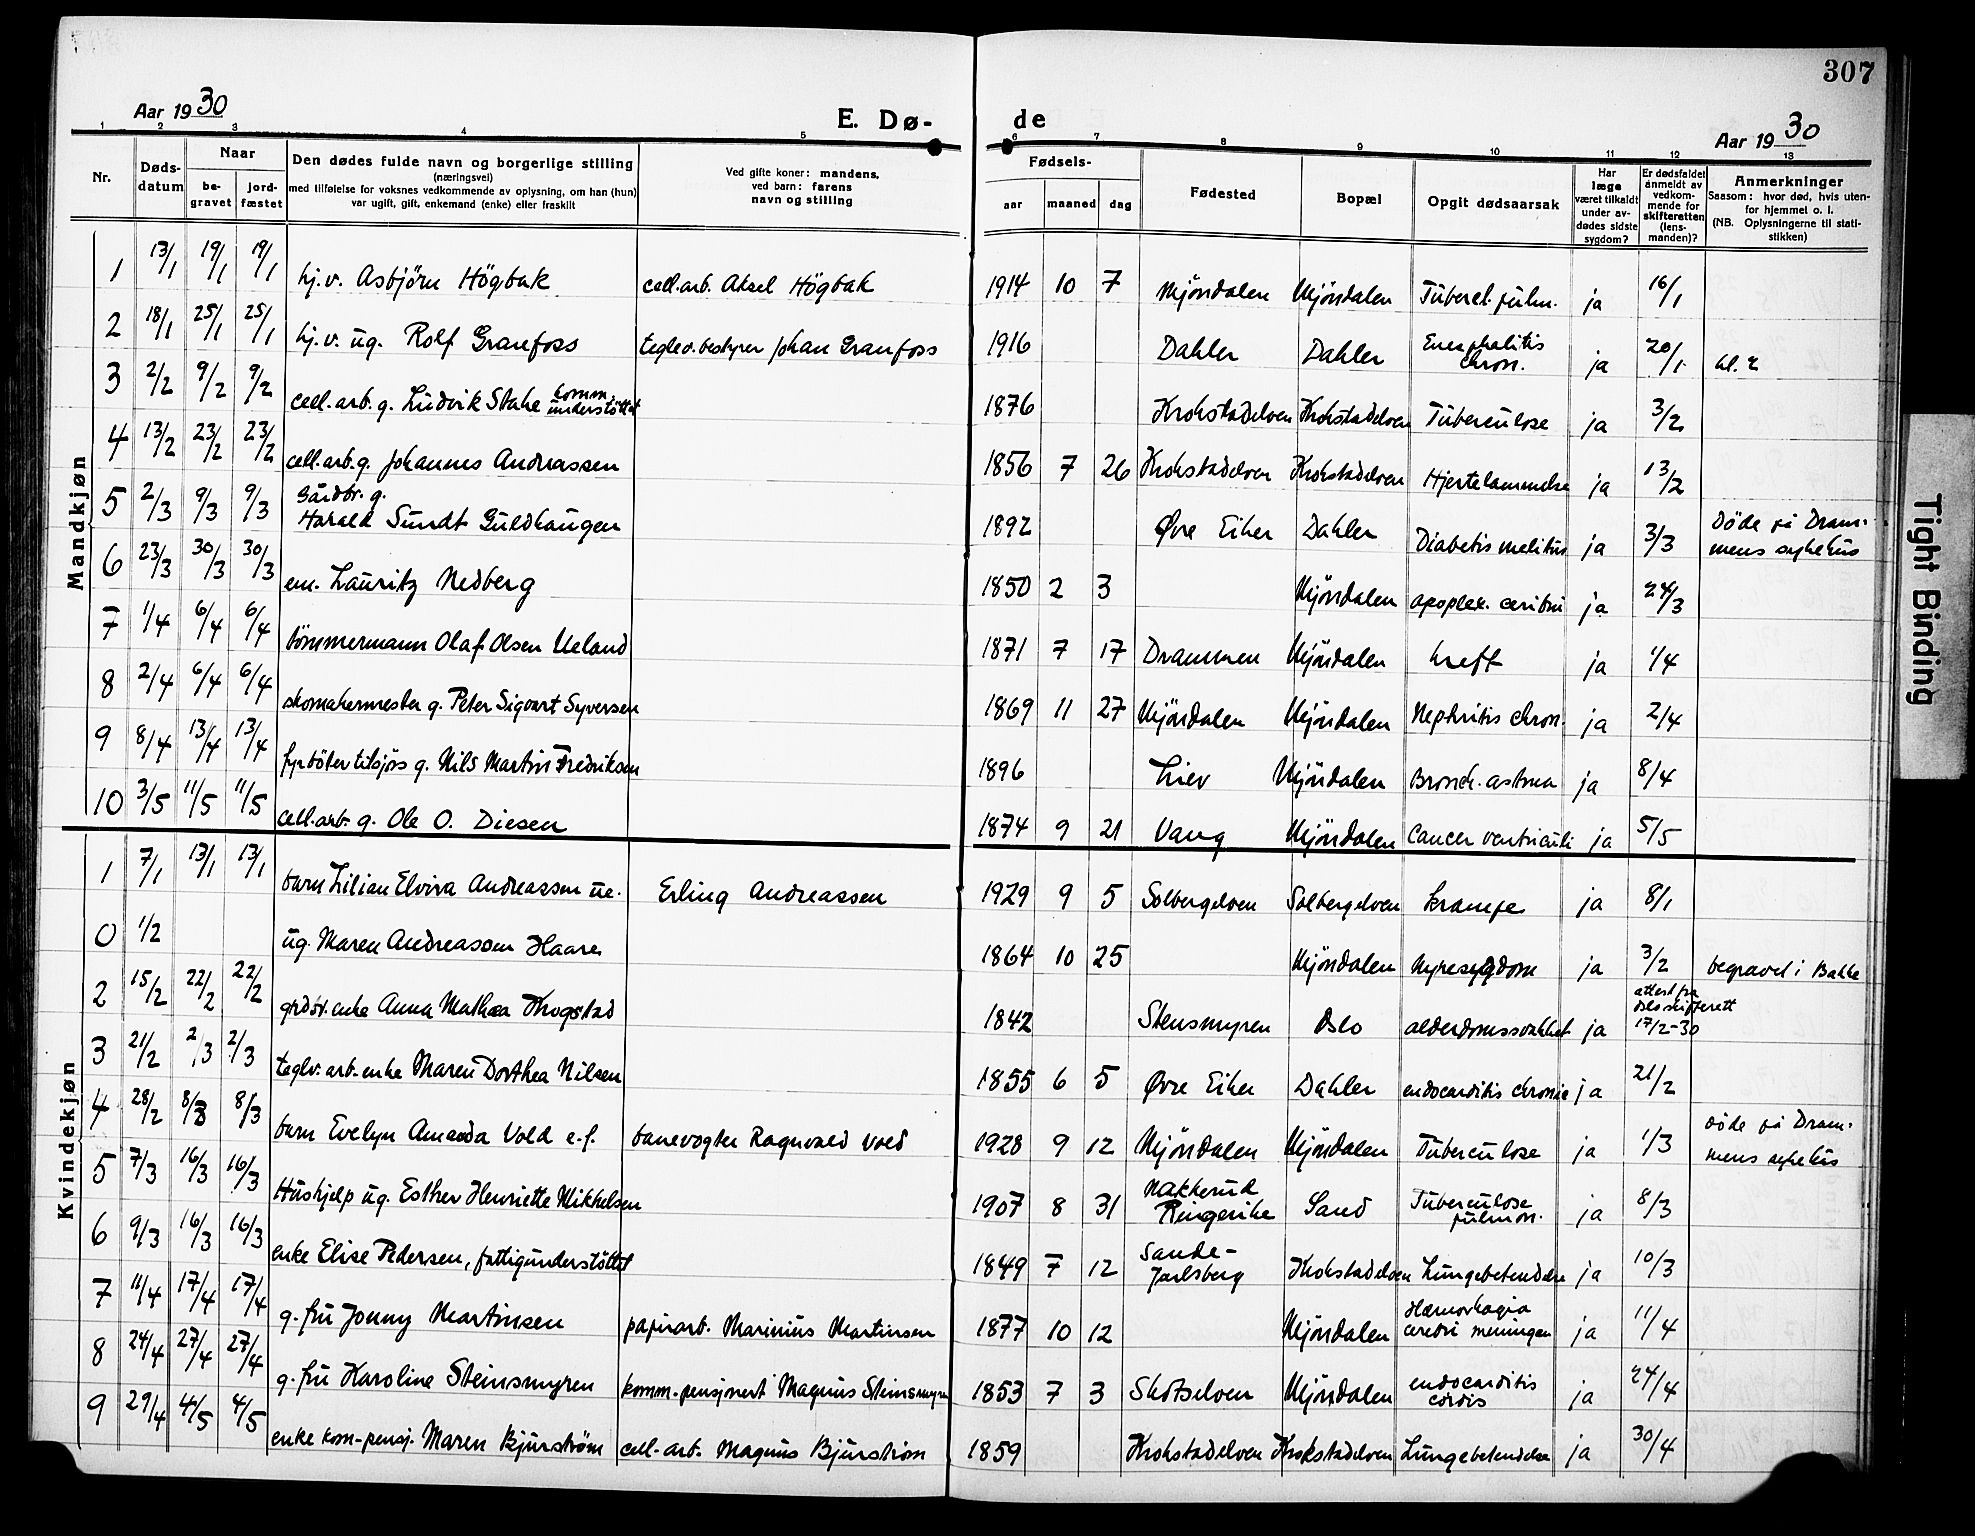 307
Aar 1930
E. Dø-
de
Aar 1930
1 2 3 4 5 6 7 8 9 10 11 12 13
Nr.
Døds-
datum
Naar
be-
gravet
jord-
fæstet
Den dødes fulde navn og borgerlige stilling
(næringsvei)
med tilføielse for voksnes vedkommende av oplysning, om han (hun)
var ugift, gift, enkemand (enke) eller fraskilt
Ved gifte koner: mandens,
ved barn: farens
navn og stilling
Fødsels-
aar maaned dag
Fødested
Bopæl
Opgit dødsaarsak
Har
læge
været tilkaldt
under av-
dødes sidste
sygdom?
Er dødsfaldet
anmeldt av
vedkom-
mende for
skifteretten
(lens-
manden)?
Anmerkninger
Saasom: hvor død, hvis uten-
for hjemmet o. l.
(NB. Oplysningerne til stati-
stikken)
Mandkjøn
1 13/1 19/1 19/1 hj.v. Asbjörn Högbak cell.arb. Aksel Högbak 1914 10 7 Mjöndalen Mjöndalen Tubercl. pulm. ja 16/1
2 18/1 25/1 25/1 hj.v. ug. Rolf Granfoss teglv.bestyrer Johan Granfoss 1916 Dahler Dahler Encephalitis chron. ja 20/1
3 2/2 9/2 9/2 cell.arb.g. Ludvik Stake komm. understöttet 1876 Krokstadelven Krokstadelven Tuberculose ja 3/2
4 13/2 23/2 23/2 cell.arb.g. Johannes Andreassen 1856 7 26 Krokstadelven Krokstadelven Hjertelammelse ja 13/2
5 2/3 9/3 9/3 Gårdbr. g. Harald Sundt Guldhaugen 1892 Øvre Eiker Dahler Diabetis melitus ja 3/3 Döde på Drammens sykehus
6 23/3 30/3 30/3 em. Lauritz Nedberg 1850 2 3 Mjöndalen apoplex. cerebri ja 24/3
7 1/4 6/4 6/4 tömmermann Olaf Olsen Ueland 1871 7 17 Drammen Mjöndalen kreft ja 1/4
8 2/4 6/4 6/4 skomakermester g. Peter Sigvart Syversen 1869 11 27 Mjöndalen Mjöndalen Nephritis chron. ja 2/4
9 8/4 13/4 13/4 fyrböter tilsjøs g. Nils Martin Fredriksen 1896 Lier Mjöndalen Bronch. astma ja 8/4
10 3/5 11/5 11/5 cell.arb. g. Ole O. Diesen 1874 9 21 Vang Mjöndalen Cancer ventriculi ja 5/5
Kvindekjøn
1 7/1 13/1 13/1 barn Lilian Elvira Andreassen ue. Erling Andreassen 1929 9 5 Solbergelven Solbergelven krampe ja 8/1
0 1/2 ug. Maren Andreassen Haare 1864 10 25 Mjöndalen Nyresygdom ja 3/2 begravet i Bakke
2 15/2 22/2 22/2 grdbr.enke Anna Mathea Krogstad 1842 Stensmyren Oslo alderdomssvakhet ja attest fra Oslo skifterett 17/2-30
3 21/2 2/3 2/3 teglv.arb.enke Maren Dorthea Nilsen 1855 6 5 Øvre Eiker Dahler endocarditis chronic ja 21/2
4 28/2 8/3 8/3 barn Evelyn Amanda Vold e.f. banevogter Ragnvald Vold 1928 9 12 Mjöndalen Mjöndalen Tuberculose ja 1/3 döde på Drammens sykehus
5 7/3 16/3 16/3 Hushjelp ug. Esther Henriette Mikkelsen 1907 8 31 Nakkerud Ringerike Sand Tuberculose pulmon. ja 8/3
6 9/3 16/3 16/3 enke Elise Pedersen, fattigunderstöttet 1849 7 12 Sande- Jarlsberg Krokstadelven Lungebetendelse ja 10/3
7 11/4 17/4 17/4 g. fru Jonny Martinsen papirarb. Marinius Martinsen 1877 10 12 Mjöndalen Hæmorhagia cerebri meningen ja 11/4
8 24/4 27/4 27/4 g. fru Karoline Steinsmyren komm.pensjonert Magnus Steinsmyren 1853 7 3 Skotselven Mjöndalen endocarditis cordis ja 24/4
9 29/4 4/5 4/5 enke kom-pensj. Maren Bjurström cell.arb. Magnus Bjurström 1859 Krokstadelven Krokstadelven Lungebetendelse ja 30/4
Tight Binding